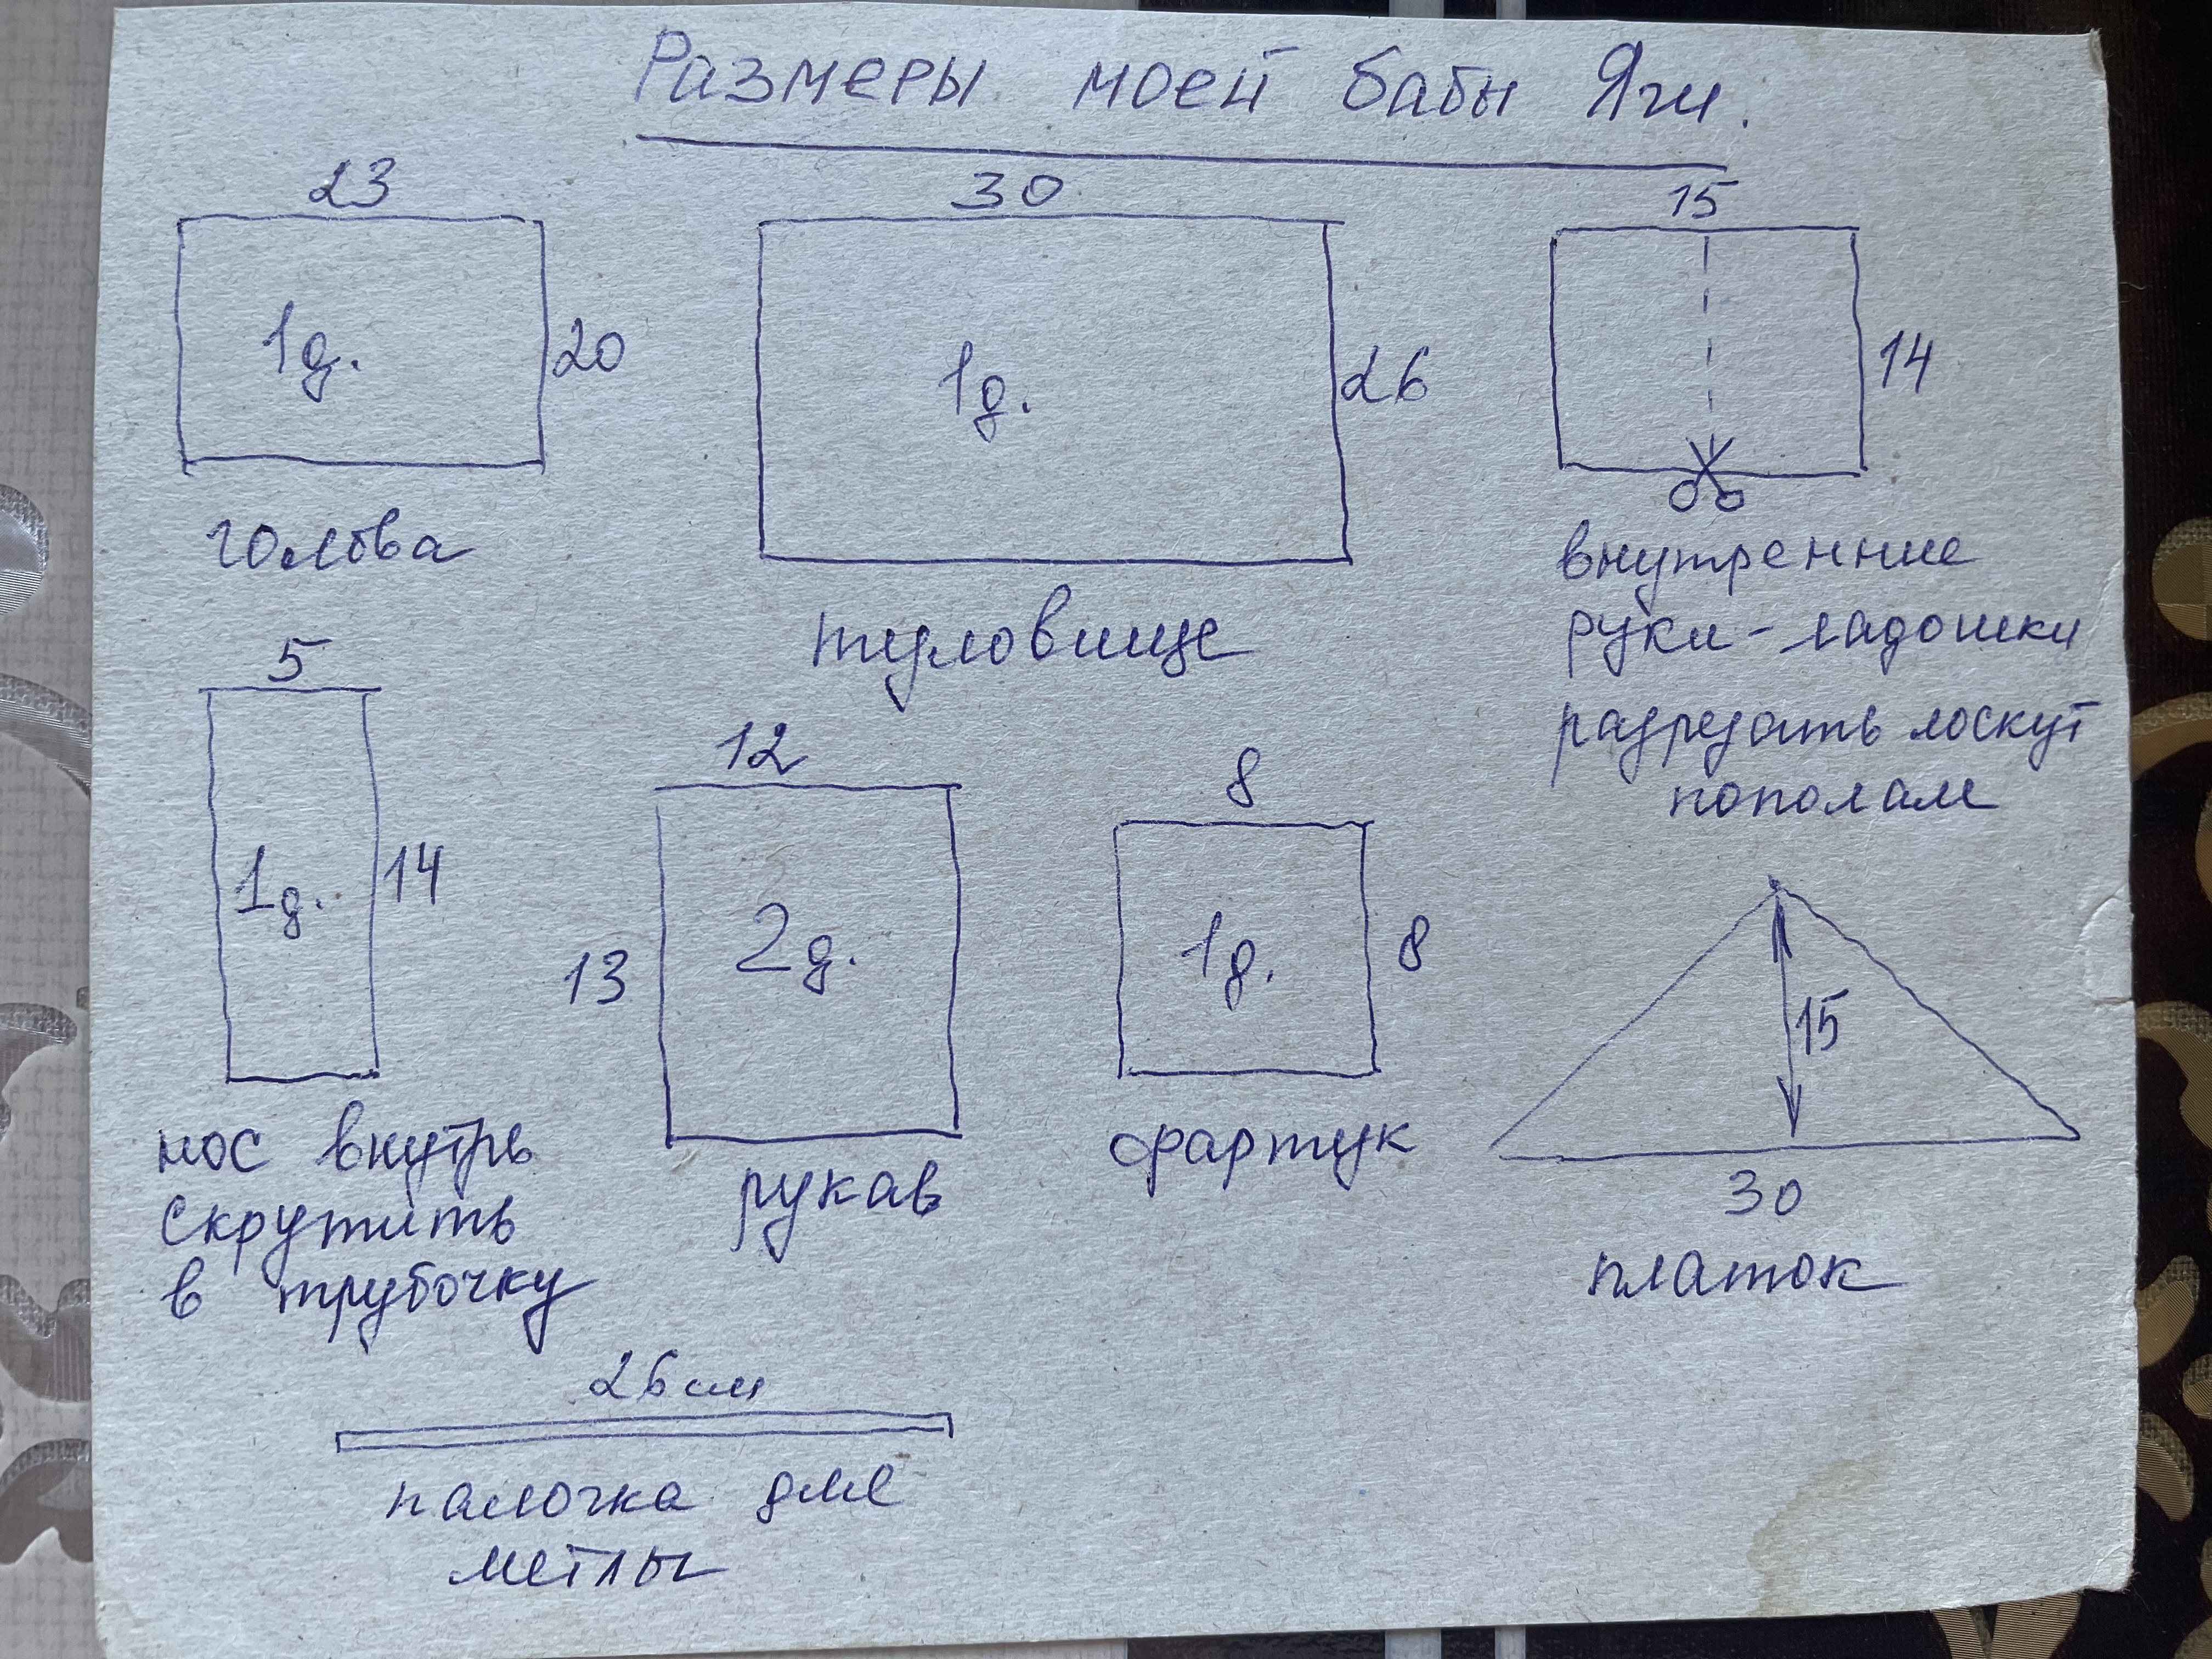 Размеры моей бабы Яги.
23
1д.
20
голова
30
1д.
26
туловище
15
14
внутренние
руки - ладошки
разрезать лоскут
пополам
5
1д.
14
нос внутрь
скрутить
в трубочку
12
13
2д.
рукав
8
1д.
8
фартук
15
30
платок
26 см
палочка для
метлы